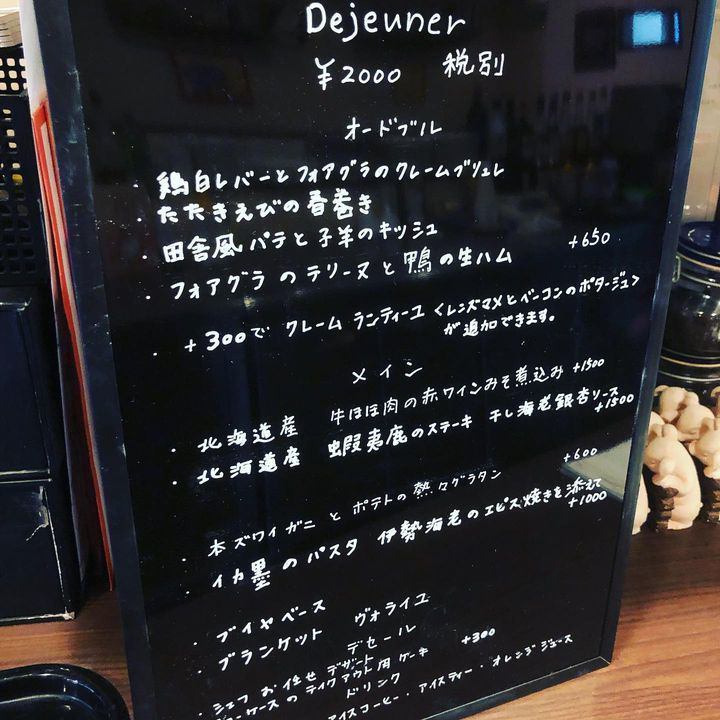 Dejeuner
¥2000 税別
オードブル
・鶏白レバーとフォアグラのクレームブリュレ
・たたきえびの春巻き
・田舎風パテと子羊のキッシュ
・フォアグラのテリーヌと鴨の生ハム +650
・+300で クレーム ランティーユ <レンズマメとベーコンのポタージュ>
が追加できます。
メイン
・北海道産 牛ほほ肉の赤ワインみそ煮込み +1500
・北海道産 蝦夷鹿のステーキ 干し海老銀杏ソース
+1500
・本ズワイガニとポテトの熱々グラタン +600
・イカ墨のパスタ 伊勢海老のエピス焼きを添えて
+1000
・ブイヤベース
・ブランケット ヴォライユ
デセール
・シェフお任せデザート +300
・ショーケースのテイクアウト用ケーキ
ドリンク
アイスコーヒー・アイスティー・オレンジジュース